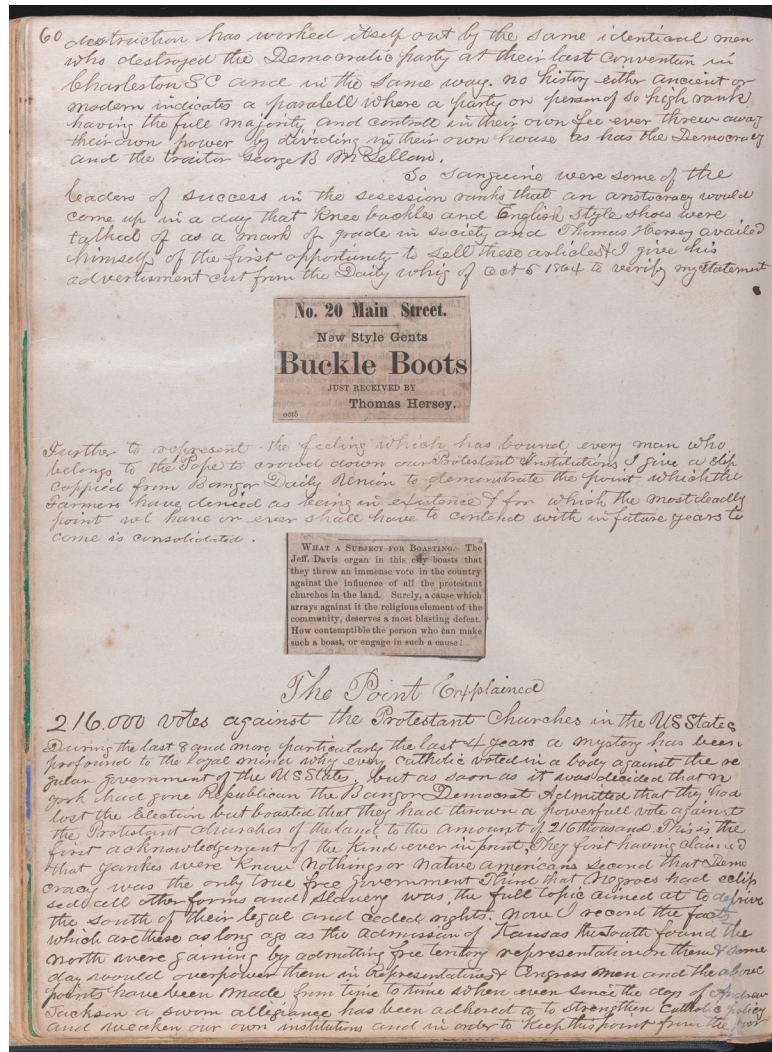 60 destruction has worked itself out by the same identical men
who destroyed the Democratic party at their last Convention in
Charleston SC and in the same way. no history either ancient or
modern indicates a paralell where a party or person of so high rank
having the full majority and controll in their own fee ever threw away
their own power by dividing in their own house as has the Democracy
and the traitor George B McLellan.
So sanguine were some of the
leaders of success in the secession ranks that an aristocracy would
come up in a day that Knee buckles and English Style shoes were
talked of as a mark of grade in society and Thomas Hersey availed
himself of the first opportunity to sell these articles & I give his
advertisment cut from the Daily whig of Oct 5 1864 to verify my statement
No. 20 Main Street.
New Style Gents
Buckle Boots
JUST RECEIVED BY
Thomas Hersey.
oct5
Further to represent the feeling which has bound every man who
belongs to the Pope to crowd down our Protestant Institutions I give a slip
coppied from Bangor Daily Union to demonstrate the point which the
Farmers have denied as being in existence & for which the most deadly
point we have or ever shall have to contend with in future years to
come is consolidated.
WHAT A SUBJECT FOR BOASTING. The
Jeff. Davis organ in this city boasts that
they threw an immense vote in the country
against the influence of all the protestant
churches in the land. Surely, a cause which
arrays against it the religious element of the
community, deserves a most blasting defeat.
How contemptible the person who can make
such a boast, or engage in such a cause!
The Point Explained
216,000 votes against the Protestant Churches in the US States
During the last 8 and more particularly the last 4 years a mystery has been
profound to the loyal mind why every catholic voted in a body against the re
gular government of the US States. but as soon as it was decided that N
York had gone Republican the Bangor Democrat Admitted that they had
lost the Election but boasted that they had thrown a powerfull vote against
the Protestant churches of the land, to the amount of 216 thousand. This is the
first acknowledgement of the Kind ever in print, They first having claimed
that Yankes were Know Nothings or Native Americans second that Demo
cracy was the only true free government Third that Negroes had eclip
sed all other forms and slavery was the full topic aimed at to deprive
the South of their legal and ceded rights. Now I record the facts
which are these as long ago as the admission of Kansas the South found the
North were gaining by admitting free teritory representation on them & some
day would overpower them in Representatives & Congress men and the above
points have been made from time to time when even since the days of Andrew
Jackson a sworn allegiance has been adhered to to strengthen Catholic policy
and weaken our own institutions and in order to keep this point from the